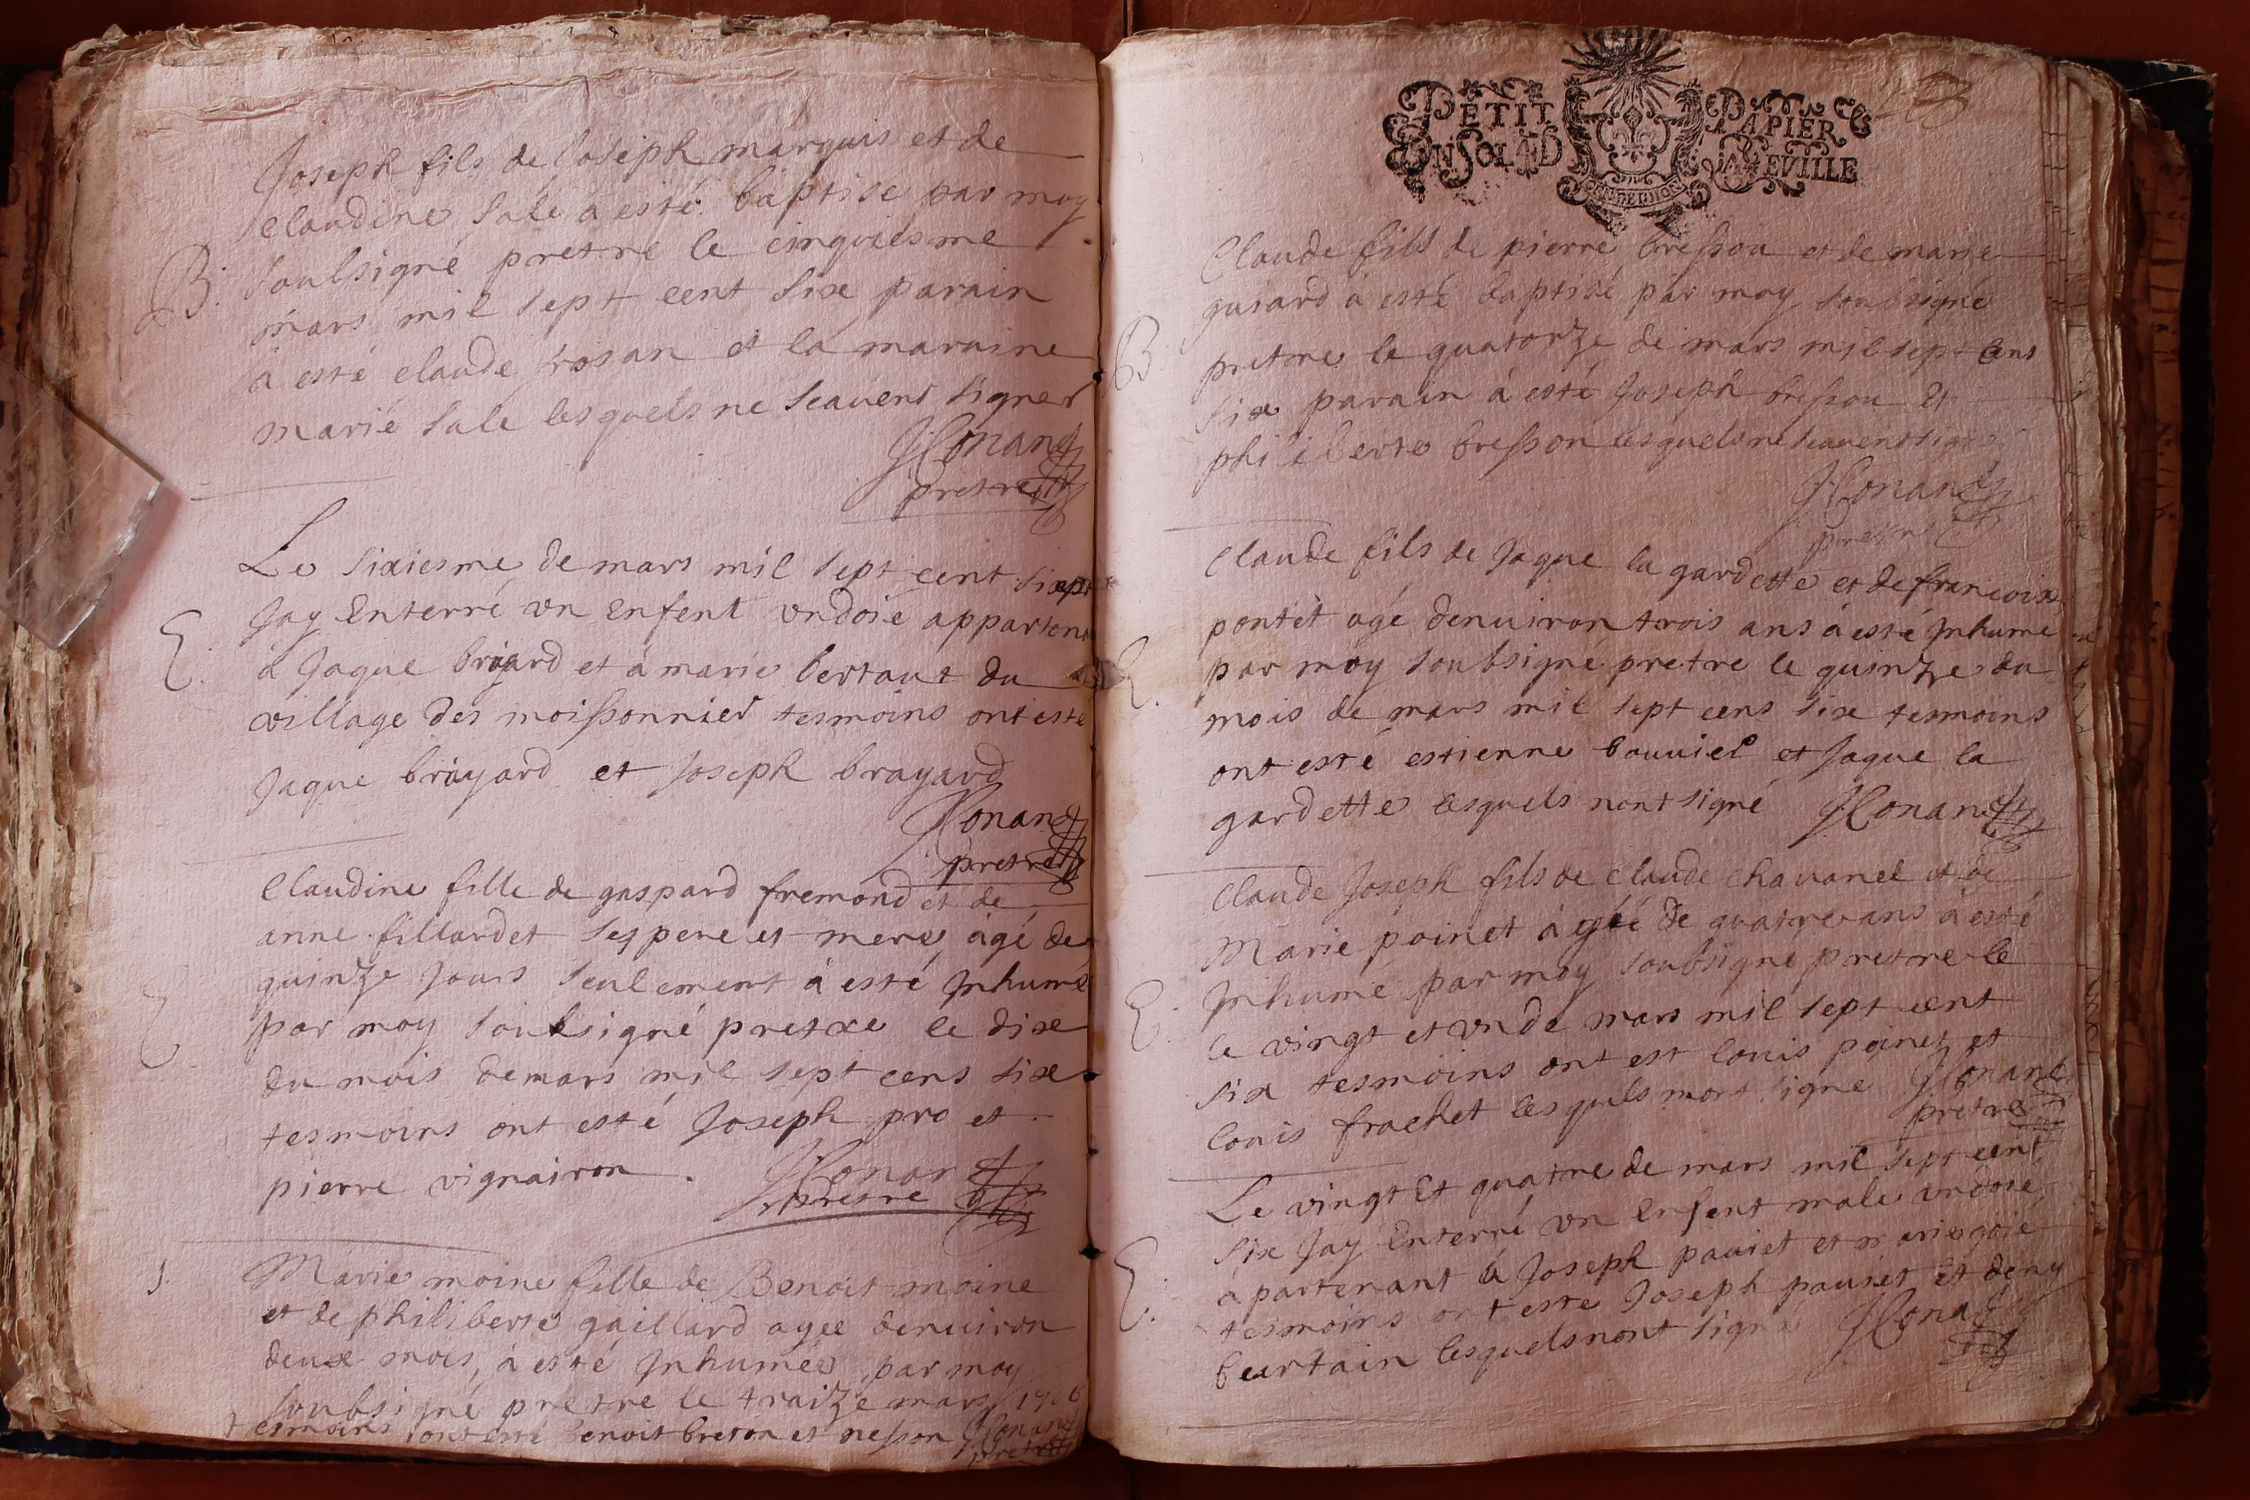 Joseph fils de Joseph marquis et de
Claudine Salé a esté baptise par moy
B. soubsigné pretre le cinquiesme
mars mil sept cent six parain
à esté claude frosan et la maraine
marie Sale lesquels ne scavent signer
JConand
pretre
Le sixiesme de mars mil sept cent six
E. Jay Enterré un enfent undoié appartena
à Jaque brayard et à marie bertaut du
village des moissonnier tesmoins ont esté
Jaque brayard et Joseph brayard
JConand
pretre
Claudine fille de gaspard fremond et de
anne fillardet ses pere et mere agé de
quinze Jours seulement à esté Jnhumé
E par moy soubsigné pretre le dixe
du mois de mars mil sept cens six
tesmoins ont esté Joseph pro et
pierre vignairon. JConand
pretre
Marie moine fille de Benoit moine
et de philiberte gaillard agee denuiron
deux mois, à esté Jnhumée par moy
soubsigné pretre le traize mars 1706
tesmoins ont esté benoit breton et nesson JConand
pretre
PETIT PAPIER
UN SOL 4D LA FEVILLE
Claude fils de pierre bresson et de marie
gusard à esté baptisé par moy soubsigné
B pretre le quatorze de mars mil sept cens
six parain à esté Joseph bresson Et
philiberte bresson lesquels ne scavent signer
JConand
pretre
Claude fils de Jaque la gardette et de francoise
pontet agé denuiron trois ans à esté Jnhumé
E. par moy soubsigné pretre le quinze du
mois de mars mil sept cens six tesmoins
ont esté estienne bouuier et Jaque la
gardette lesquels nont signé JConand
Claude Joseph fils de Claude chavanel et de
Marie poinet àgéé de quatre ans à esté
E. Jnhumé par moy soubsigné pretre le
le vingt et un de mars mil sept cent
six tesmoins ont est louis poinet et
louis frachet lesquels nont signe JConand
pretre
Le vingt Et quatre de mars mil sept cent
six Jay Enterré un Enfent male undoié
E. apartenant à Joseph pauiet et marie goié
tesmoins ont este Joseph pauiet Et deny
beurtain lesquels nont signé JConad